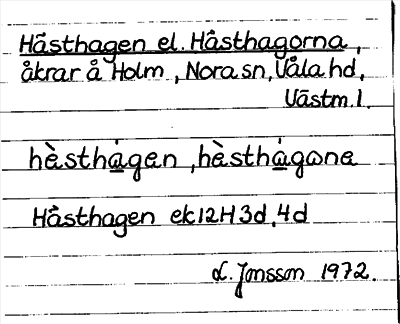 Hästhagen el. Hästhagorna,
åkrar å Holm, Nora sn, Våla hd,
Västm. l.
hὲsthȧ̲gen, hὲsthȧ̲gωna
Hästhagen ek 12H 3d, 4d
L. Jonsson 1972.